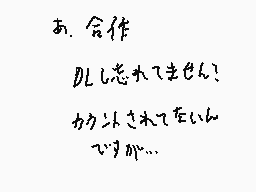 あ、合作
DLし忘れてません?
カウントされてないん
ですが…